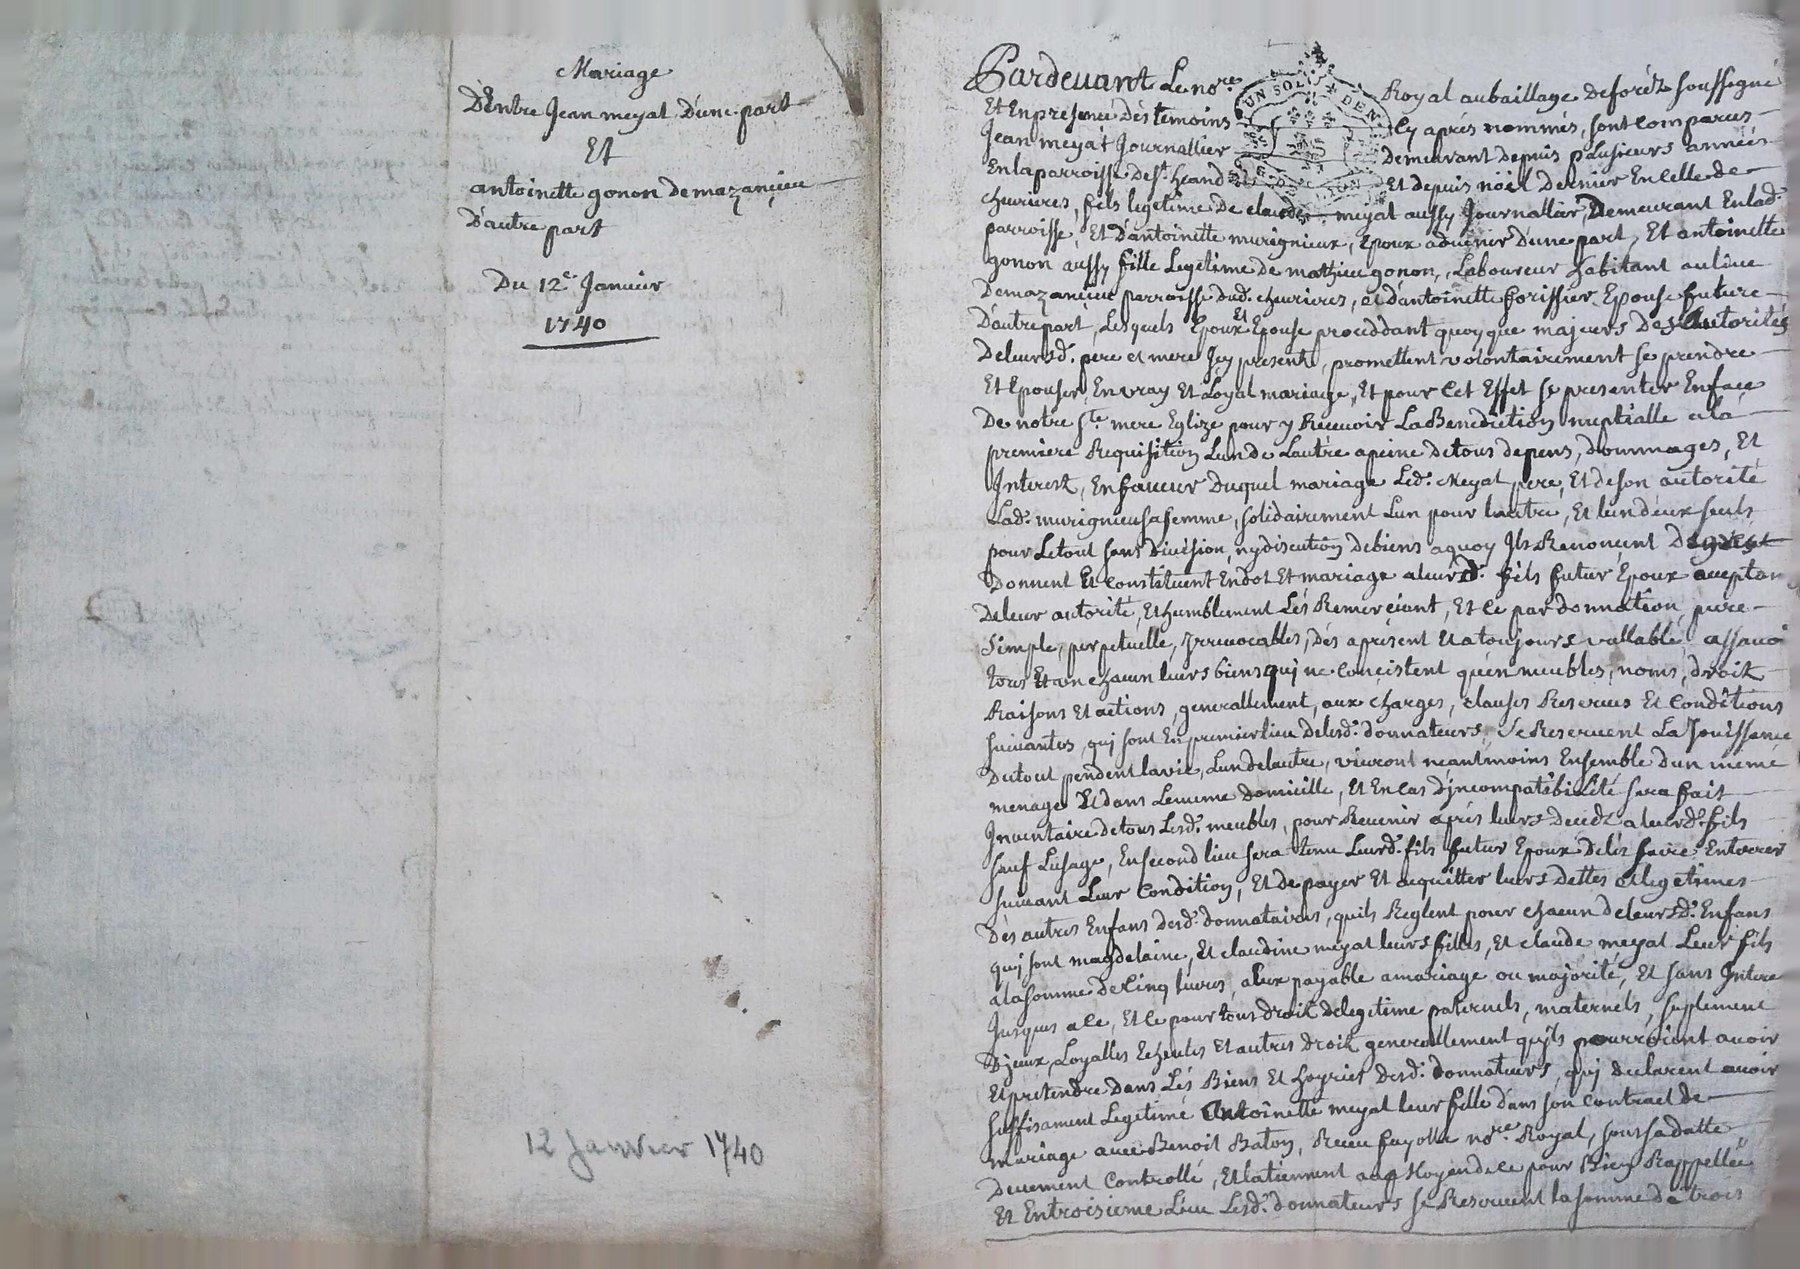 Mariage
D'Entre Jean meyat D'une part
Et
antoinette gonon de mazancieu
D'autre part
Du 12e Janvier
1740
12 Janvier 1740
UN SOL DEN
Pardevant Le nore Royal au bailliage de foréz soussigné
Et En présence des témoins cy aprés nommés, sont comparus
Jean meyat Journallier demeurant depuis plusieurs années
En la parroisse de st. heand Et depuis nöel dernier En celle de
chevrieres, fils legetime de claude meyat aussy Journallier, Demeurant En lad.
parroisse, Et D'antoinette murignieux, Epoux advenir D'une part, Et antoinette
gonon aussy fille Legetime de mathieu gonon, Laboureur habitant au lieu
De mazancieu parroisse dud. chevrieres, et d'antoinette thorissier Epouse future
D'autre part, Lesquels Epoux Et Epouse proceddant quoyque majeurs Des Autorités
De leursd. pere et mere Jcy presents, promettent volontairement se prendre
Et Epouser, En vray Et Loyal mariage, Et pour Cet Effet se presenter En face
De notre ste. mere Eglize pour y Recevoir La Benediction nuptialle a la
premiere Requisition L'un de L'autre a peine de tous depens, dommages, Et
Interest, En faveur Duquel mariage Led. Meyat pere, Et de son autorité
Lad. murignieu sa femme, solidairement L'un pour l'autre, Et l'un d'eux seuls
pour Le tout sans division, ny discution de biens a quoy Ils Renoncent De gré
Donnent Et constituent En dot Et mariage a leursd. fils futur Epoux acceptan
De leur autorité, Et humblement Les Remerciant, Et ce par donnation pure
Simple, perpetuelle, Irrevocables, Dés aprésent Et a toujours vallable, assavoi
tous Et un chacun leurs biens qui ne concistent qu'en meubles, noms, droit
Raisons Et actions, generallement, aux charges, clauses Reserves Et Conditions
suivantes, qui sont En premier lieu De lesd. donnateurs, se Reservent La Joüissance
Du tout pendent la vie, L'un de l'autre, vivront néantmoins Ensemble d'un mémé
menage Et dans Le meme domicille, Et En cas d'jncompatibilité sera fait
Inventaire de tous Lesd. meubles, pour Revenir aprés leurs Decedz a leurd. fils
sauf L'usage, En second lieu sera tenu Leurd. fils futur Epoux De les faire Enterrer
suivant Leur Condition, Et de payer Et acquitter leurs Dettes Et legetimes
Des autres Enfans desd. donnataires, quils Reglent pour chacun de leursd. Enfans
quj sont magdelaine, Et claudine meyat leurs filles, Et claude meyat Leur fils
a la somme de Cinq livres, a Eux payable a mariage ou majorité, Et sans Intere
Jusques a ce, Et ce pour tous droit de legetime paternels, maternels, suplement
D'jceux, Loyalles Echeutes Et autres droit generallement qu'jls pourroient avoir
Et prétendre dans Les Biens Et hoyries desd. donnateurs, quj declarent avoir
suffisament Legetimé Antoinette meyat leur fille dans son contract de
mariage avec Benoit Baton, Receu fayolle nore. Royal, sous sa datte
Deuement Controllé, Et la tiennent au Moyen de ce pour Bien Rappellée
Et En troisieme Lieu Lesd. donnateurs se Reservent la somme de trois